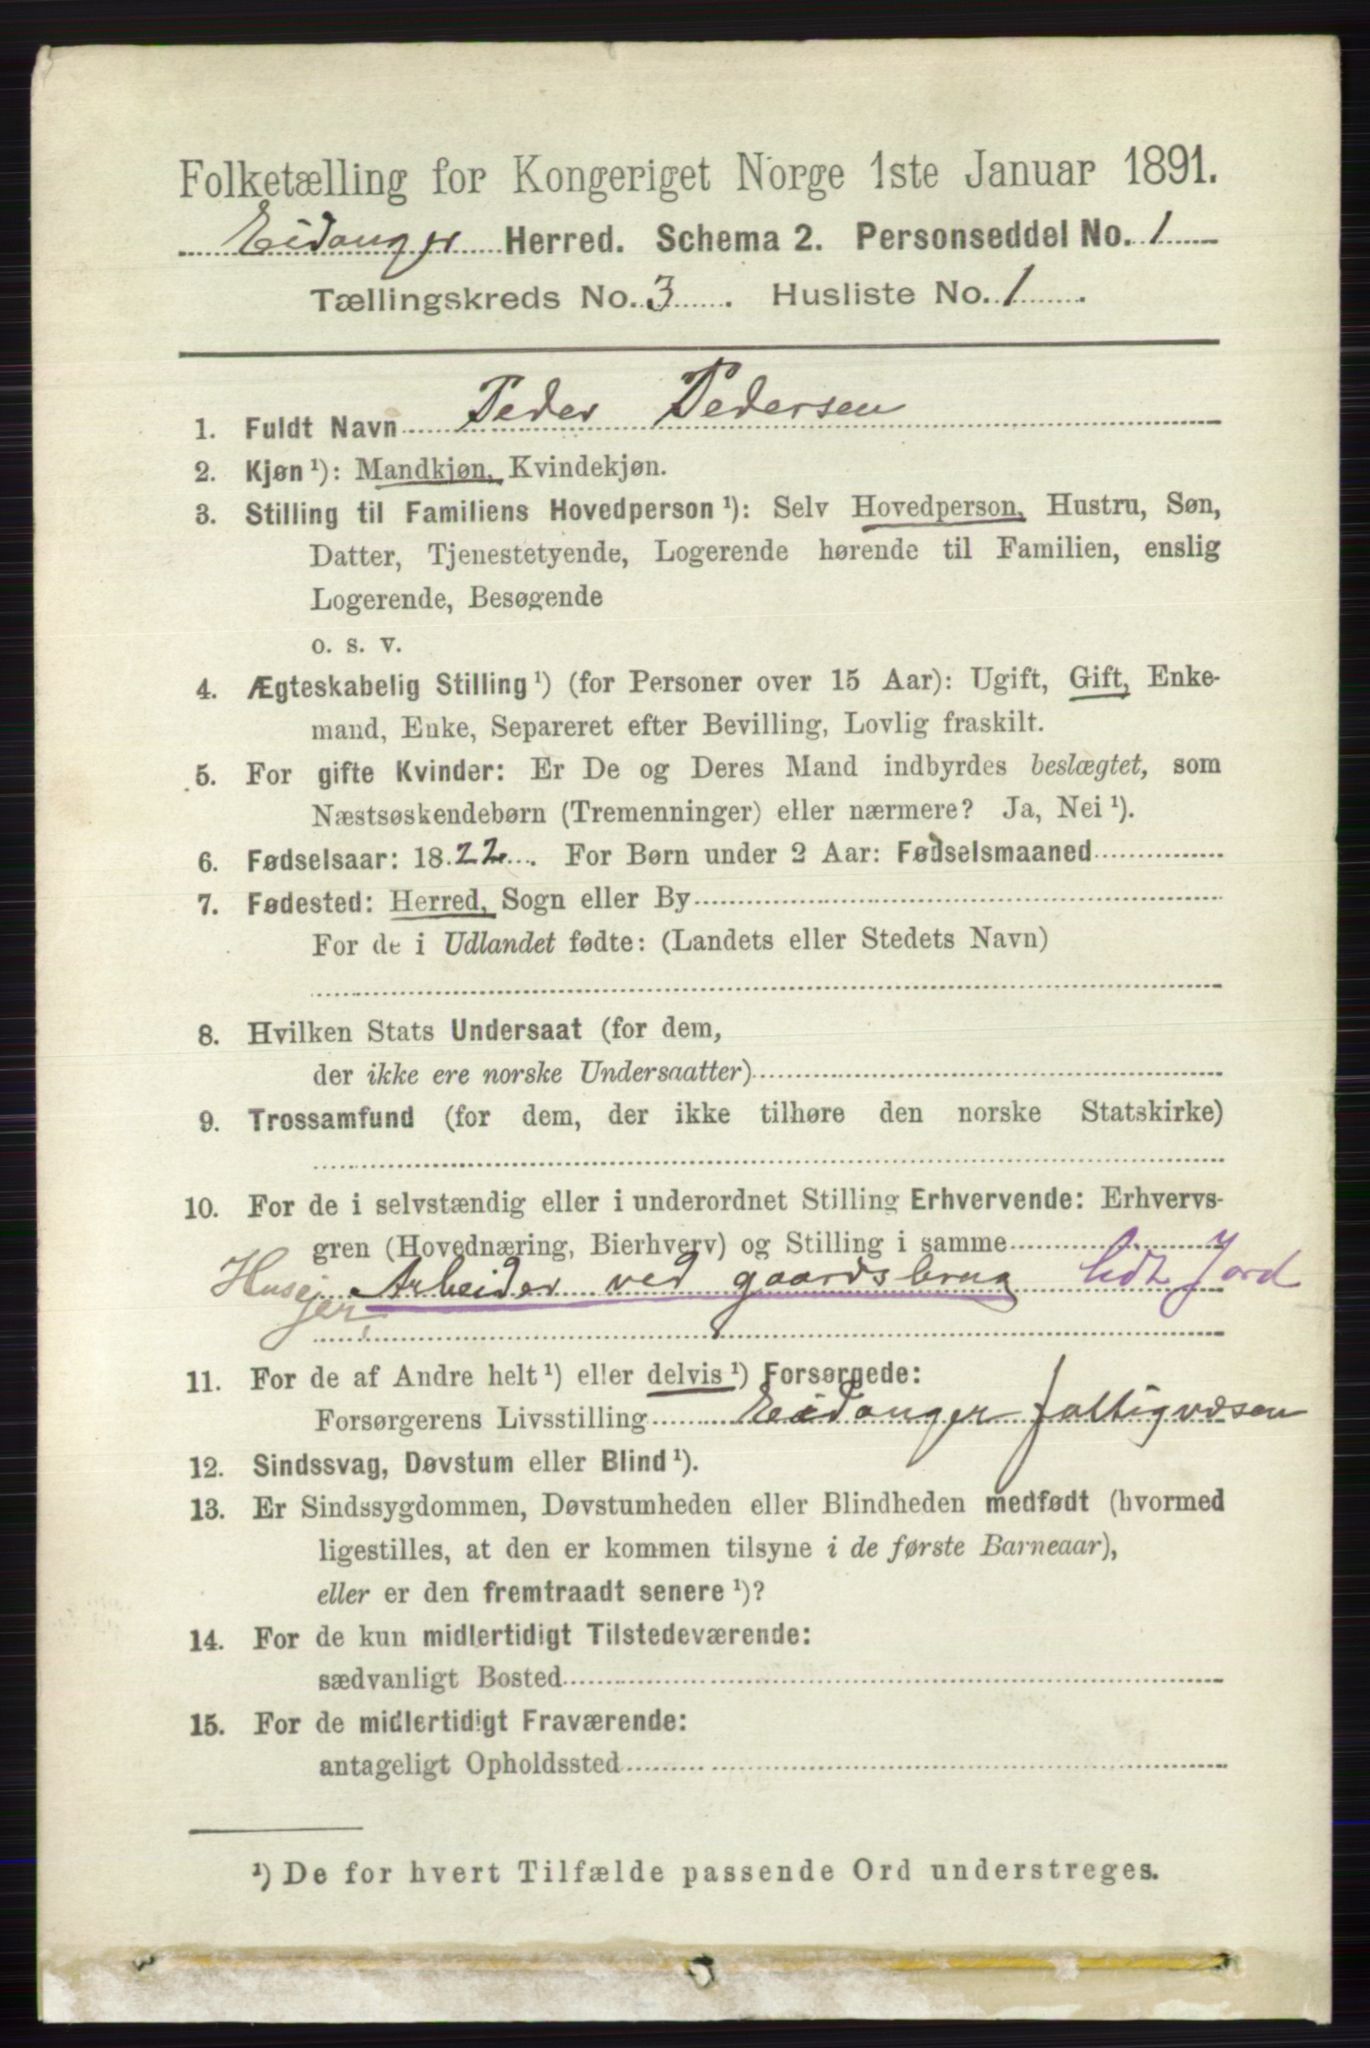 Folketælling for Kongeriget Norge 1ste Januar 1891.
Eidanger Herred. Schema 2. Personseddel No. 1
Tællingskreds No. 3. Husliste No. 1.
1. Fuldt Navn Peder Pedersen
2. Kjøn¹): Mandkjøn, Kvindekjøn.
3. Stilling til Familiens Hovedperson¹): Selv Hovedperson, Hustru, Søn,
Datter, Tjenestetyende, Logerende hørende til Familien, enslig
Logerende, Besøgende
o. s. v.
4. Ægteskabelig Stilling¹) (for Personer over 15 Aar): Ugift, Gift, Enke-
mand, Enke, Separeret efter Bevilling, Lovlig fraskilt.
5. For gifte Kvinder: Er De og Deres Mand indbyrdes beslægtet, som
Næstsøskendebørn (Tremenninger) eller nærmere? Ja, Nei¹).
6. Fødselsaar: 1822. For Børn under 2 Aar: Fødselsmaaned
7. Fødested: Herred, Sogn eller By
For de i Udlandet fødte: (Landets eller Stedets Navn)
8. Hvilken Stats Undersaat (for dem,
der ikke ere norske Undersaatter)
9. Trossamfund (for dem, der ikke tilhøre den norske Statskirke)
10. For de i selvstændig eller i underordnet Stilling Erhvervende: Erhvervs-
gren (Hovednæring, Bierhverv) og Stilling i samme
Husejer, Arbeider ved gaardsbrug lidt Jord
11. For de af Andre helt¹) eller delvis¹) Forsørgede:
Forsørgerens Livsstilling Eidanger fattigvæsen
12. Sindssvag, Døvstum eller Blind¹).
13. Er Sindssygdommen, Døvstumheden eller Blindheden medfødt (hvormed
ligestilles, at den er kommen tilsyne i de første Barneaar),
eller er den fremtraadt senere¹)?
14. For de kun midlertidigt Tilstedeværende:
sædvanligt Bosted
15. For de midlertidigt Fraværende:
antageligt Opholdssted
¹) De for hvert Tilfælde passende Ord understreges.